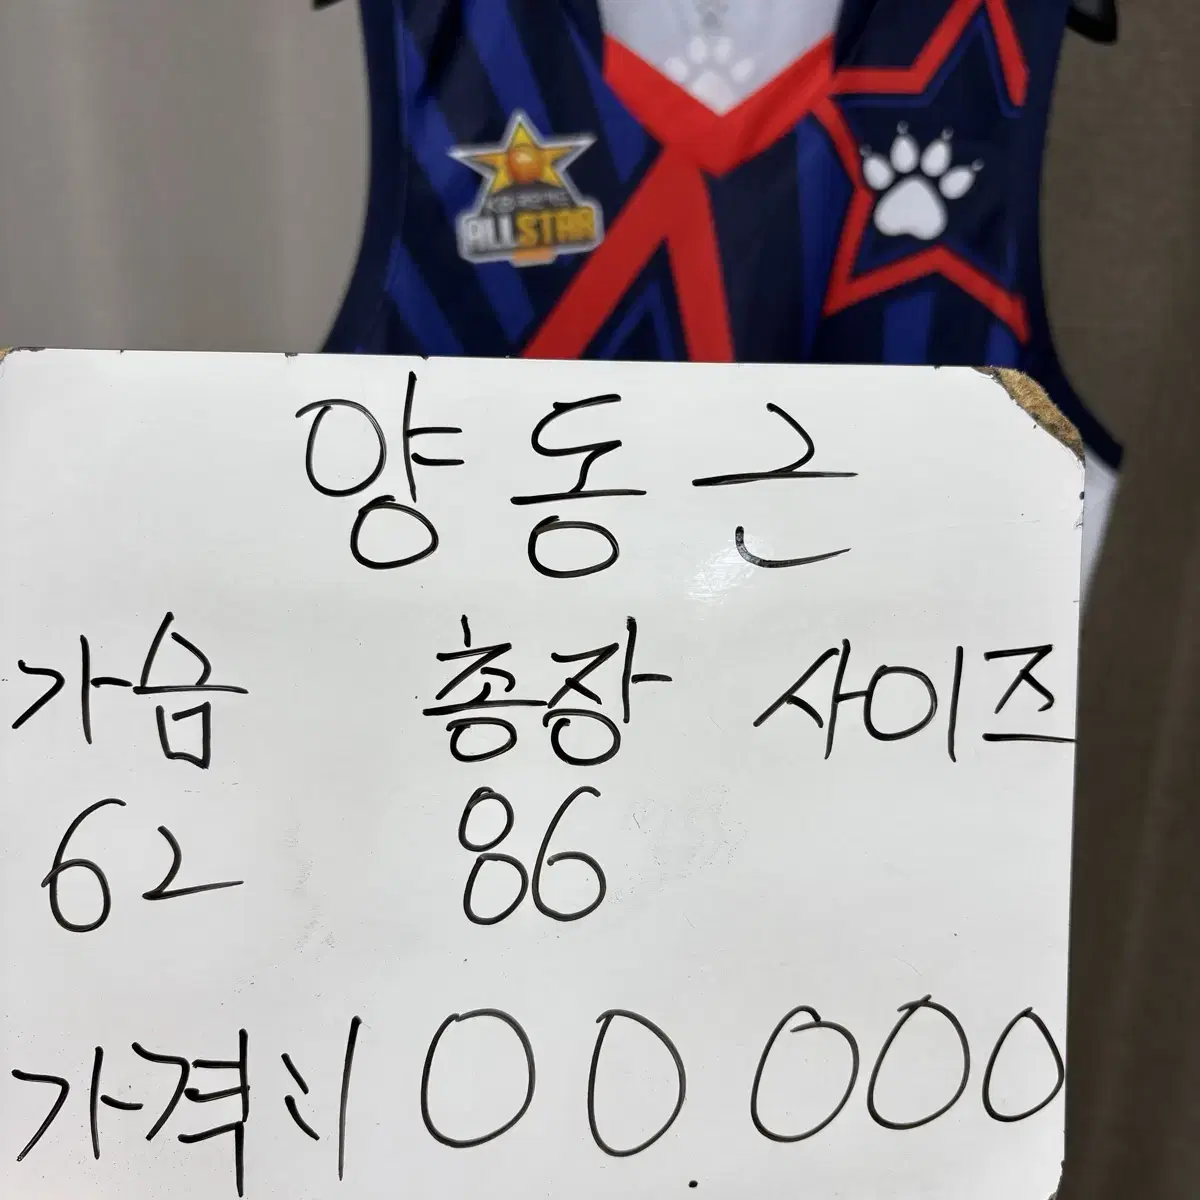 ALLSTAR
양동근
가슴 총장 사이즈
62 86
가격 : 100.000